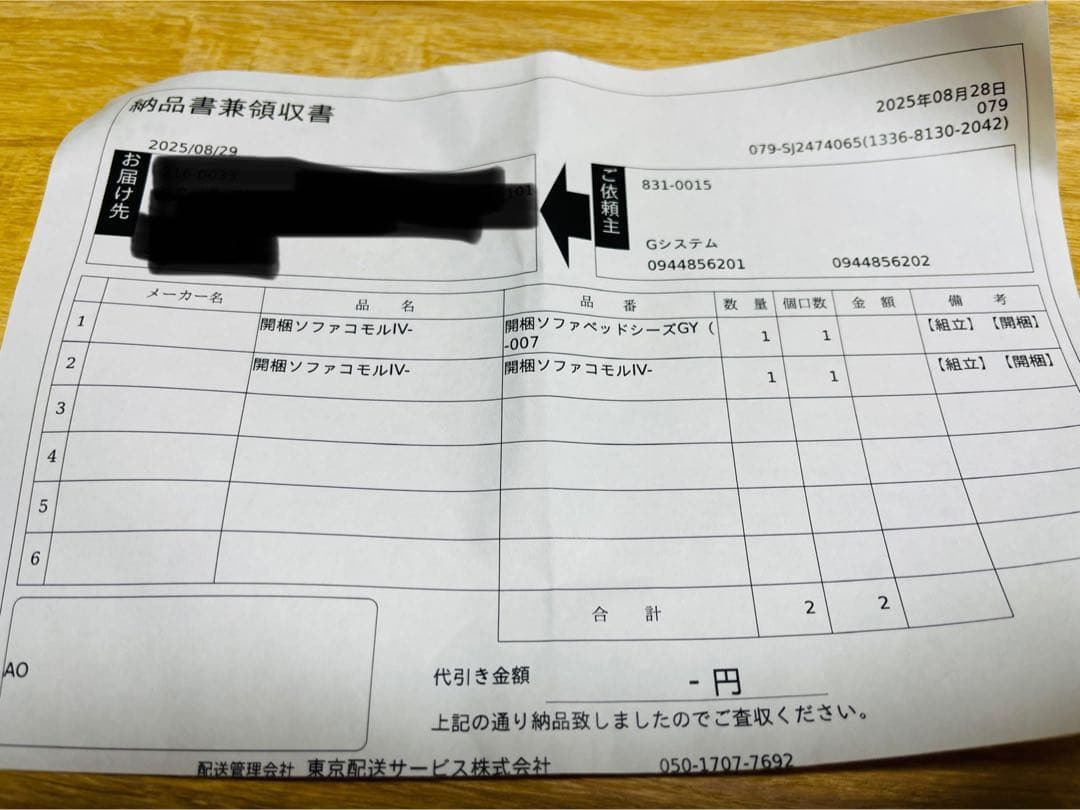 納品書兼領収書
2025年08月28日
079
079-SJ2474065(1336-8130-2042)
2025/08/29
お届け先
101
ご依頼主
831-0015
Gシステム
0944856201 0944856202
メーカー名 品名 品番 数量 個口数 金額 備考
1 開梱ソファコモルIV- 開梱ソファベッドシーズGY (
-007 1 1 【組立】【開梱】
2 開梱ソファコモルIV- 開梱ソファコモルIV- 1 1 【組立】【開梱】
3
4
5
6
合計 2 2
AO
代引き金額 - 円
上記の通り納品致しましたのでご査収ください。
配送管理会社 東京配送サービス株式会社 050-1707-7692